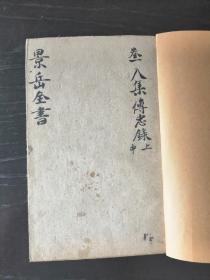 景岳全書
壹 入集傳忠錄上
中